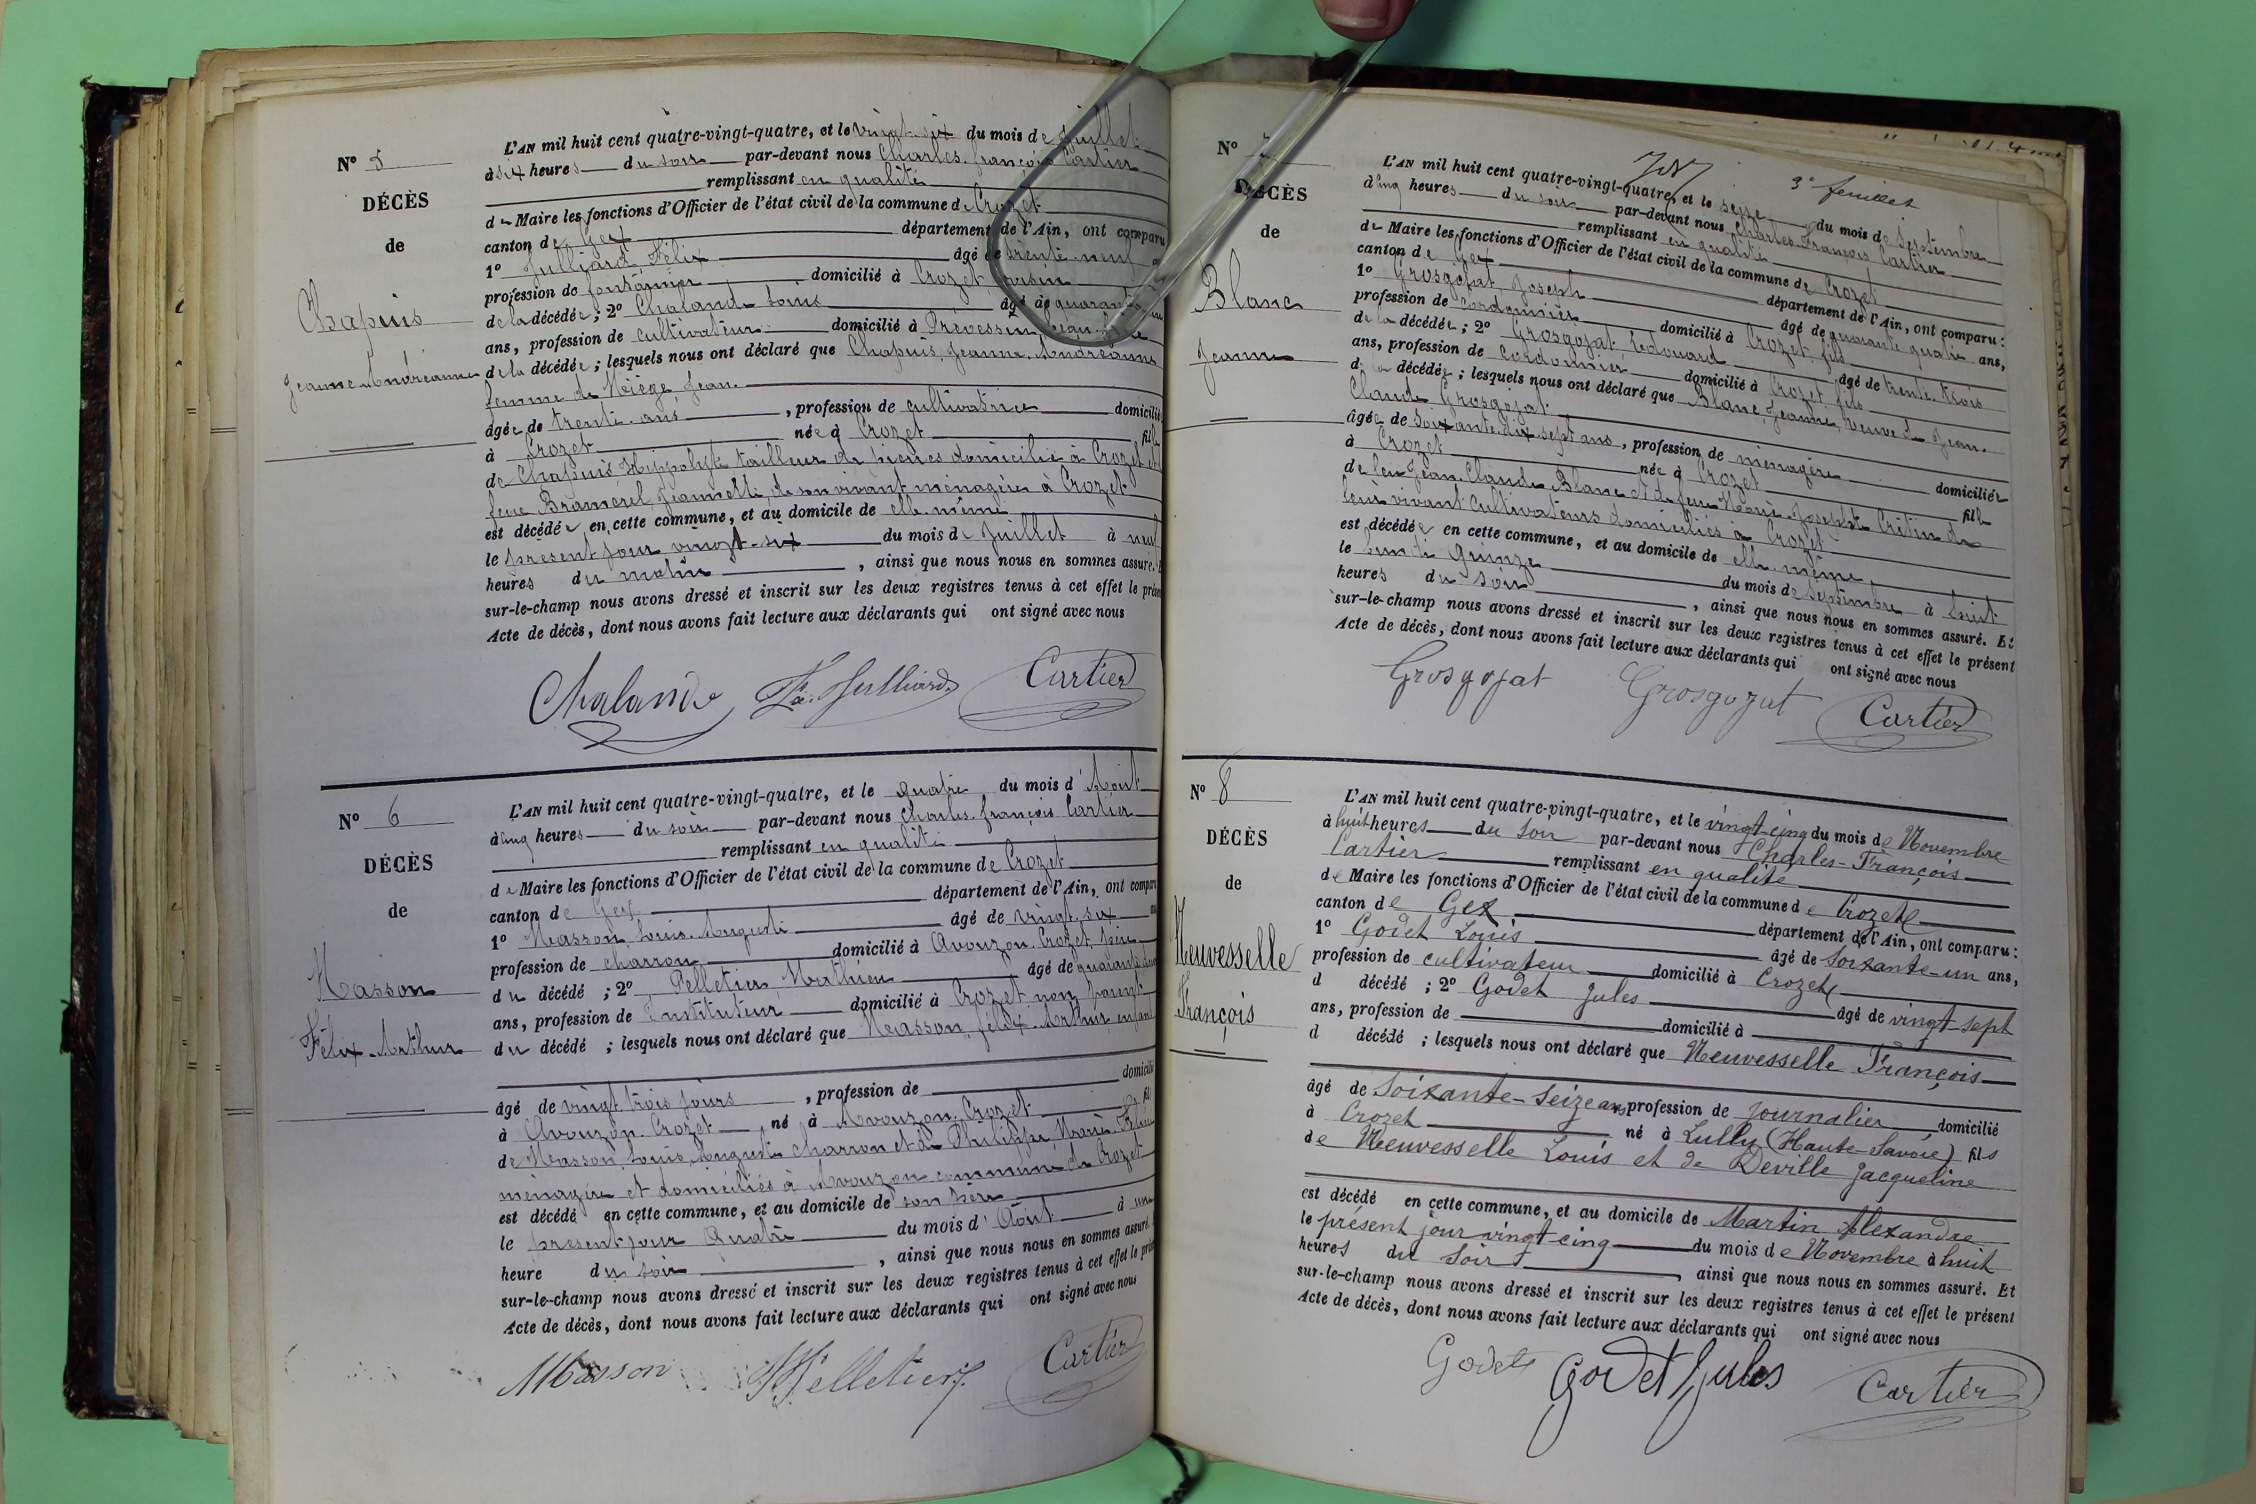 N° 5
DÉCÈS
de
Chapuis
Jeanne Andréanne
L'AN mil huit cent quatre-vingt-quatre, et le vingt-six du mois de Juillet
à six heures du soir par-devant nous Charles François Cartier
remplissant en qualité
de Maire les fonctions d'Officier de l'état civil de la commune de Crozet
canton de Gex département de l'Ain, ont comparu
1° Julliard Félix âgé de trente-neuf
profession de fontainier domicilié à Crozet voisin
de la décédée ; 2° Chalande Louis âgé de quarante
ans, profession de cultivateur domicilié à Prévessin
de la décédée ; lesquels nous ont déclaré que Chapuis, Jeanne, Andréanne
femme de Niège Jean
âgée de trente ans , profession de cultivatrice domicilié
à Crozet née à Crozet fille
de Chapuis Hippolyte tailleur de pierres domicilié à Crozet et de
feue Bramerel, Jeannette, de son vivant ménagère à Crozet
est décédée en cette commune, et au domicile de elle-même
le présent jour vingt-six du mois de Juillet à neuf
heures du matin , ainsi que nous nous en sommes assuré.
sur-le-champ nous avons dressé et inscrit sur les deux registres tenus à cet effet le présent
Acte de décès, dont nous avons fait lecture aux déclarants qui ont signé avec nous
Chalande Julliard Cartier
N° 6
DÉCÈS
de
Masson
Félix-Arthur
L'AN mil huit cent quatre-vingt-quatre, et le quatre du mois d'Août
à cinq heures du soir par-devant nous Charles-François Cartier
remplissant en qualité
de Maire les fonctions d'Officier de l'état civil de la commune de Crozet
canton de Gex département de l'Ain, ont comparu
1° Masson, Louis-Auguste âgé de vingt-six
profession de charron domicilié à Avouzon-Crozet, père
du décédé ; 2° Pelletier Mathieu âgé de quarante
ans, profession de Instituteur domicilié à Crozet non parent
du décédé ; lesquels nous ont déclaré que Masson, Félix-Arthur, enfant
âgé de vingt trois jours , profession de domicilié
à Avouzon-Crozet né à Avouzon-Crozet fils
de Masson, Louis-Auguste charron et de Philippe Marie
ménagère et domiciliés à Avouzon commune de Crozet
est décédé en cette commune, et au domicile de son père
le présent jour Quatre du mois d'Août à une
heure du soir , ainsi que nous nous en sommes assuré.
sur-le-champ nous avons dressé et inscrit sur les deux registres tenus à cet effet le présent
Acte de décès, dont nous avons fait lecture aux déclarants qui ont signé avec nous
Masson Pelletier Cartier
3e feuillet
N°
DÉCÈS
de
Blanc
Jeanne
L'AN mil huit cent quatre-vingt-quatre, et le seize du mois de Septembre
à cinq heures du soir par-devant nous Charles-François Cartier
remplissant en qualité
de Maire les fonctions d'Officier de l'état civil de la commune de Crozet
canton de Gex département de l'Ain, ont comparu :
1° Grosgojat, Joseph âgé de quarante quatre ans,
profession de cordonnier domicilié à Crozet, fils
de la décédée ; 2° Grosgojat, Edouard âgé de trente-trois
ans, profession de cordonnier domicilié à Crozet, fils
de la décédée ; lesquels nous ont déclaré que Blanc, Jeanne, veuve de Jean-
Claude Grosgojat
âgée de soixante dix-sept ans, profession de ménagère domiciliée
à Crozet née à Crozet fille
de feu Jean-Claude Blanc et de feue Marie-Josephte Crétin de
leur vivant cultivateurs domiciliés à Crozet
est décédée en cette commune, et au domicile de elle-même,
le Lundi Quinze du mois de Septembre à huit
heures du soir , ainsi que nous nous en sommes assuré. Et
sur-le-champ nous avons dressé et inscrit sur les deux registres tenus à cet effet le présent
Acte de décès, dont nous avons fait lecture aux déclarants qui ont signé avec nous
Grosgojat Grosgojat Cartier
N° 8
DÉCÈS
de
Neuvesselle
François
L'AN mil huit cent quatre-vingt-quatre, et le vingt-cinq du mois de Novembre
à huit heures du soir par-devant nous Charles-François
Cartier remplissant en qualité
de Maire les fonctions d'Officier de l'état civil de la commune de Crozet
canton de Gex département de l'Ain, ont comparu :
1° Godet Louis âgé de soixante-un ans,
profession de cultivateur domicilié à Crozet
d décédé ; 2° Godet Jules âgé de vingt-sept
ans, profession de domicilié à
d décédé ; lesquels nous ont déclaré que Neuvesselle François
âgé de soixante-seize ans, profession de journalier domicilié
à Crozet né à Lully (Haute-Savoie) fils
de Neuvesselle Louis et de Deville Jacqueline
est décédé en cette commune, et au domicile de Martin Alexandre
le présent jour vingt-cinq du mois de Novembre à huit
heures du soir , ainsi que nous nous en sommes assuré. Et
sur-le-champ nous avons dressé et inscrit sur les deux registres tenus à cet effet le présent
Acte de décès, dont nous avons fait lecture aux déclarants qui ont signé avec nous
Godet Godet Jules Cartier